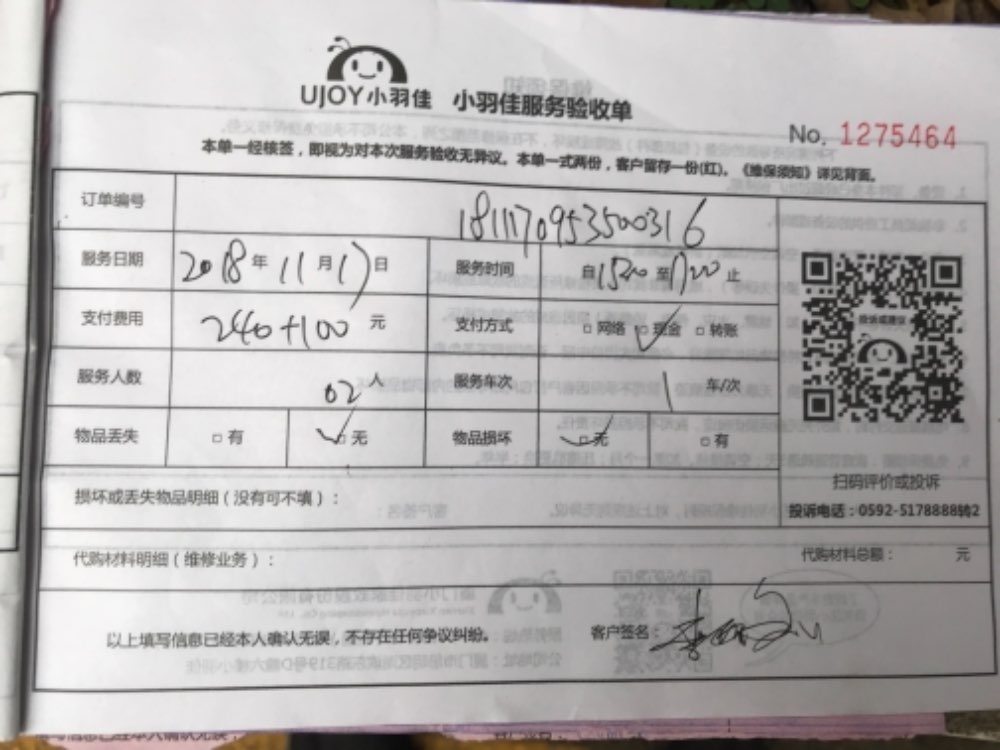 UJOY小羽佳 小羽佳服务验收单
No. 1275464
本单一经核签，即视为对本次服务验收无异议。本单一式两份，客户留存一份(红)。《维保须知》详见背面。
订单编号 1811170953500316
服务日期 2018年11月17日 服务时间 自1520至1720止
支付费用 240+100元 支付方式 □网络 □现金 □转账
投诉或建议
服务人数 02人 服务车次 1车/次
物品丢失 □有 □无 物品损坏 □无 □有
扫码评价或投诉
损坏或丢失物品明细（没有可不填）：
投诉电话：0592-5178888转2
代购材料明细（维修业务）： 代购材料总额： 元
以上填写信息已经本人确认无误，不存在任何争议纠纷。 客户签名：